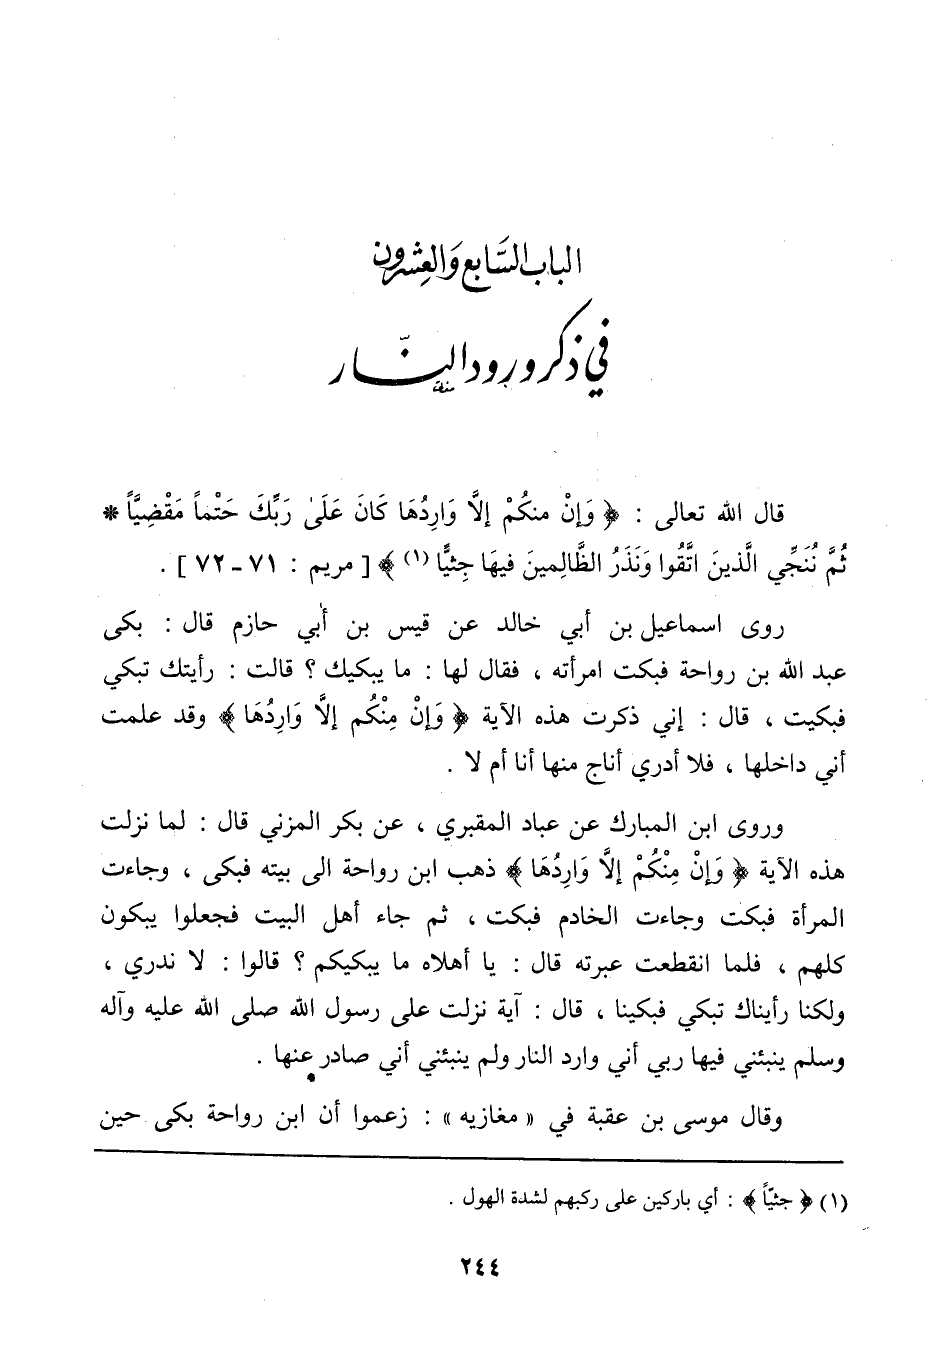 الباب السَّابع وَالعِشرون
في ذكر ورود النَّار
قال الله تعالى : ﴿ وَإِنْ منكُمْ إلاَّ وَارِدُهَا كَانَ عَلَىٰ رَبِّكَ حَتْماً مَقْضِيَّاً *
ثُمَّ نُنَجِّي الَّذينَ اتَّقُوا وَنَذَرُ الظَّالِمينَ فيهَا جِثيًّا (١) ﴾ [ مريم : ٧١ - ٧٢ ] .
روى اسماعيل بن أبي خالد عن قيس بن أبي حازم قال : بكى
عبد الله بن رواحة فبكت امرأته ، فقال لها : ما يبكيك ؟ قالت : رأيتك تبكي
فبكيت ، قال : إني ذكرت هذه الآية ﴿ وَإِنْ مِنْكُم إلاَّ وَارِدُهَا ﴾ وقد علمت
أني داخلها ، فلا أدري أناج منها أنا أم لا .
وروى ابن المبارك عن عباد المقبري ، عن بكر المزني قال : لما نزلت
هذه الآية ﴿ وَإِنْ مِنْكُمْ إلاَّ وَارِدُهَا ﴾ ذهب ابن رواحة الى بيته فبكى ، وجاءت
المرأة فبكت وجاءت الخادم فبكت ، ثم جاء أهل البيت فجعلوا يبكون
كلهم ، فلما انقطعت عبرته قال : يا أهلاه ما يبكيكم ؟ قالوا : لا ندري ،
ولكنا رأيناك تبكي فبكينا ، قال : آية نزلت على رسول الله صلى الله عليه وآله
وسلم ينبئني فيها ربي أني وارد النار ولم ينبئني أني صادر عنها .
وقال موسى بن عقبة في « مغازيه » : زعموا أن ابن رواحة بكى حين
(١) ﴿ جثيّاً ﴾ : أي باركين على ركبهم لشدة الهول .
٢٤٤